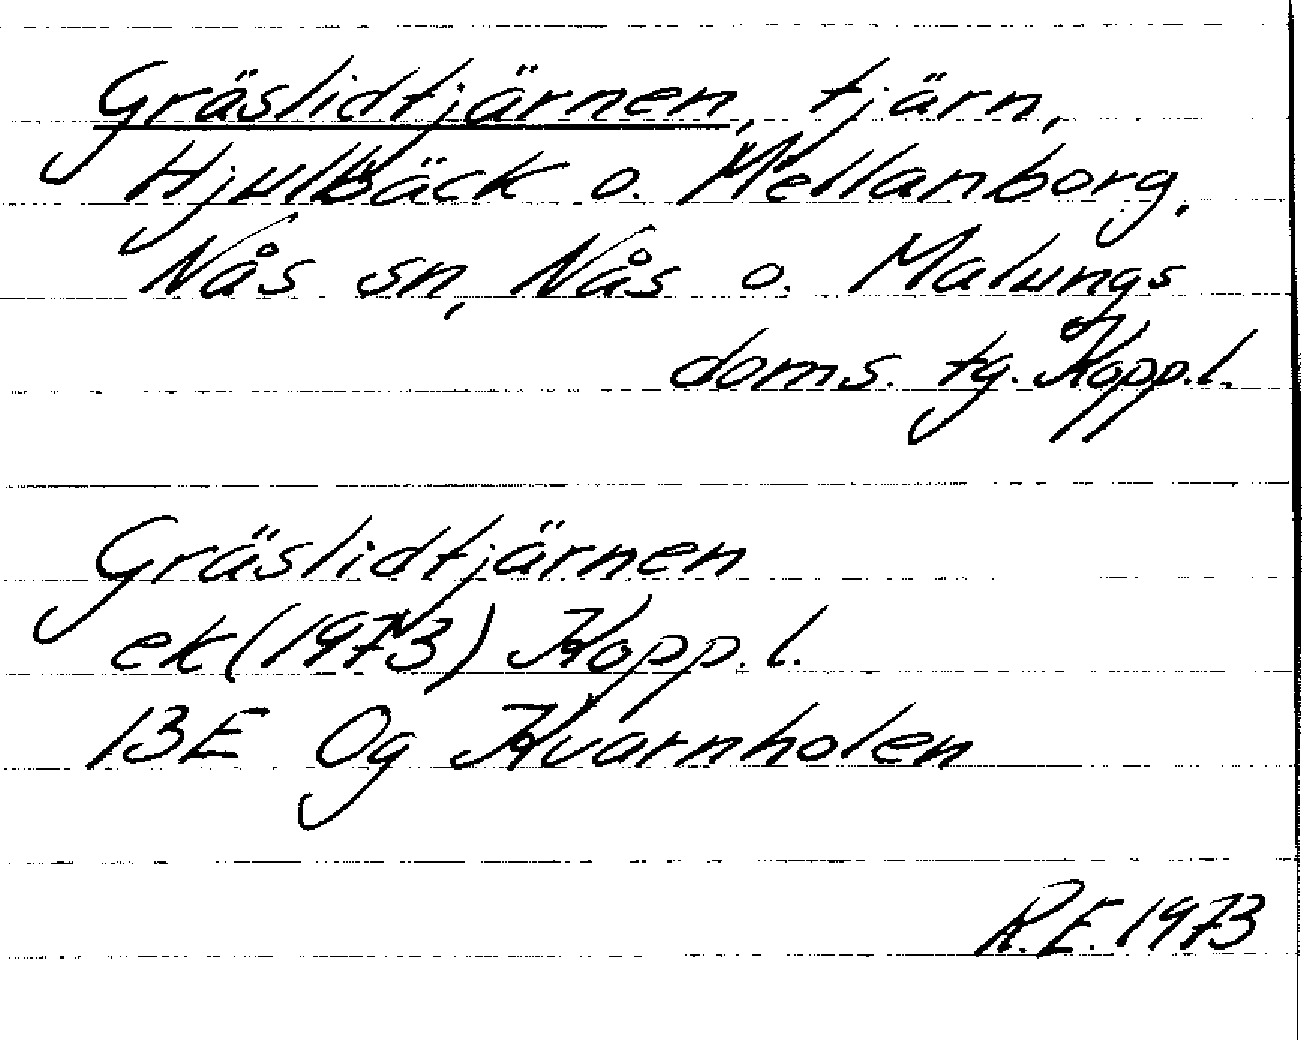 Gräslidtjärnen, tjärn,
Hjulbäck o. Mellanborg,
Nås sn, Nås o. Malungs
doms. tg. Kopp.l.
Gräslidtjärnen
ek (1973) Kopp.l.
13E 0g Kvarnholen
R.E. 1973